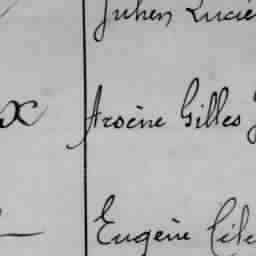 Julien Lucie
x Arsène Gilles
Eugène